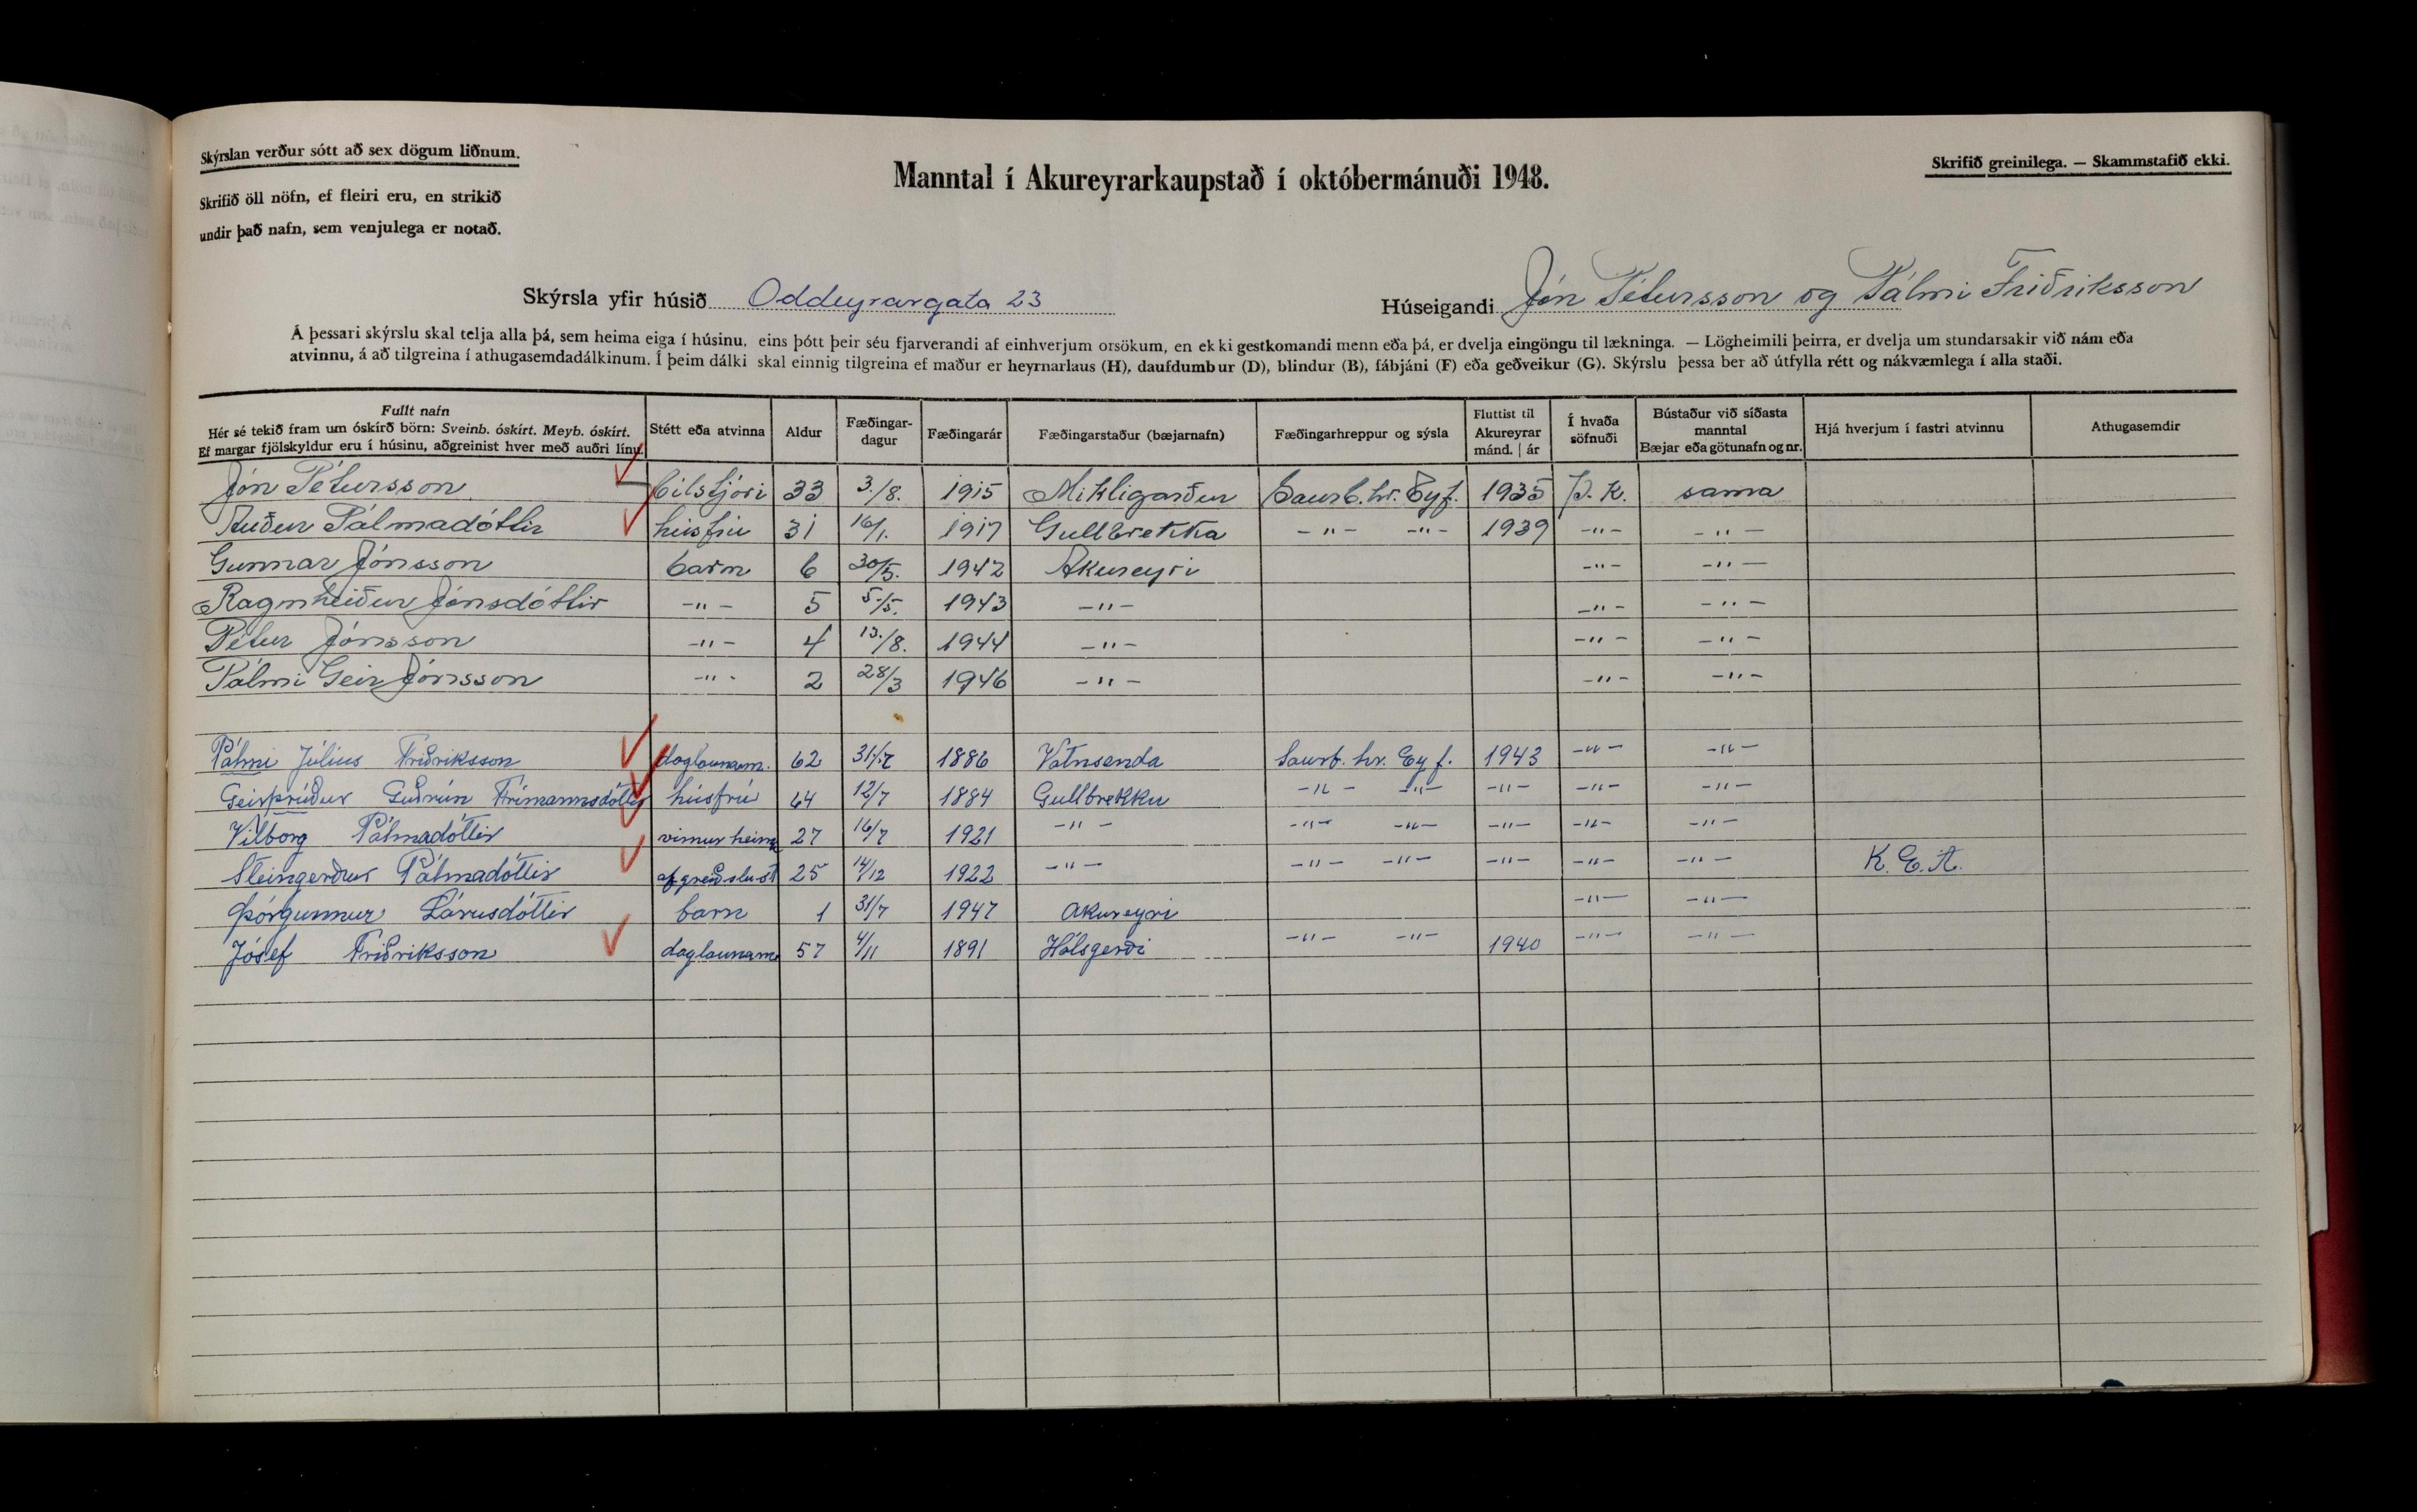 Skýrslan verður sótt að sex dögum liðnum.
Skrifið öll nöfn, ef fleiri eru, en strikið
undir það nafn, sem venjulega er notað.
Manntal í Akureyrarkaupstað í októbermánuði 1948.
Skrifið greinilega. — Skammstafið ekki.
Skýrsla yfir húsið Oddeyrargata 23
Húseigandi Jón Pétursson og Pálmi Friðriksson
Á þessari skýrslu skal telja alla þá, sem heima eiga í húsinu, eins þótt þeir séu fjarverandi af einhverjum orsökum, en ekki gestkomandi menn eða þá, er dvelja eingöngu til lækninga. — Lögheimili þeirra, er dvelja um stundarsakir við nám eða
atvinnu, á að tilgreina í athugasemdadálkinum. Í þeim dálki skal einnig tilgreina ef maður er heyrnarlaus (H), daufdumbur (D), blindur (B), fábjáni (F) eða geðveikur (G). Skýrslu þessa ber að útfylla rétt og nákvæmlega í alla staði.
Fullt nafn
Hér sé tekið fram um óskírð börn: Sveinb. óskírt. Meyb. óskírt.
Ef margar fjölskyldur eru í húsinu, aðgreinist hver með auðri línu.
Stétt eða atvinna
Aldur
Fæðingar-
dagur
Fæðingarár
Fæðingarstaður (bæjarnafn)
Fæðingarhreppur og sýsla
Fluttist til
Akureyrar
mánd. | ár
Í hvaða
söfnuði
Bústaður við síðasta
manntal
Bæjar eða götunafn og nr.
Hjá hverjum í fastri atvinnu
Athugasemdir
Jón Pétursson bílstjóri 33 3./8. 1915 Mikligarður Saurb. hr. Eyf. 1935 Þ. K. sama
Auður Pálmadóttir húsfrú 31 16/1. 1917 Gullbrekka -"- -"- 1939 -"- -"-
Gunnar Jónsson barn 6 30/5. 1942 Akureyri -"- -"-
Ragnheiður Jónsdóttir -"- 5 5./5. 1943 -"- -"- -"-
Pétur Jónsson -"- 4 13./8. 1944 -"- -"- -"-
Pálmi Geir Jónsson -"- 2 28/3 1946 -"- -"- -"-
Pálmi Júlíus Friðriksson daglaunam. 62 31/7 1886 Vatnsenda Saurb. hr. Eyf. 1943 -"- -"-
Geirþrúður Guðrún Frímannsdóttir húsfrú 64 12/7 1884 Gullbrekku -"- -"- -"- -"- -"-
Vilborg Pálmadóttir vinnur heima 27 16/7 1921 -"- -"- -"- -"- -"- -"-
Steingerður Pálmadóttir afgreiðslust 25 14/12 1922 -"- -"- -"- -"- -"- -"- K. E. A.
Þórgunnur Lárusdóttir barn 1 31/7 1947 Akureyri -"- -"-
Jósef Friðriksson daglaunam 57 4/11 1891 Hólsgerði -"- -"- 1940 -"- -"-